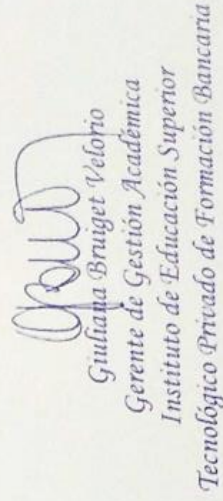 Giuliana Bruiget Velorio
Gerente de Gestión Académica
Instituto de Educación Superior
Tecnológico Privado de Formación Bancaria